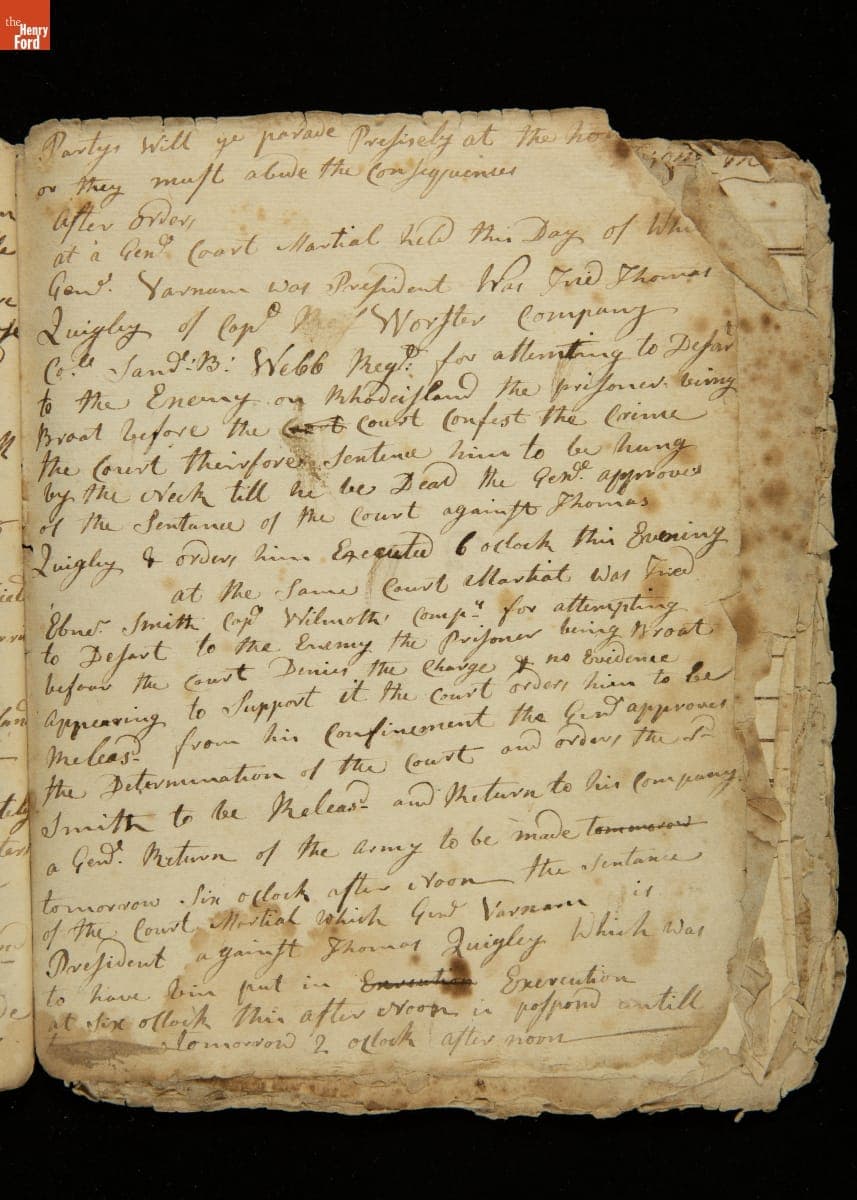 the
Henry
Ford
Partys Will ye parade Presisely at the
or they must abide the Consequenses
After orders
at a Genl. Court Martial held this Day of
Genl. Varnam was President Was Tried Thomas
Quigley of Capt Worster Company
Colls Saml: B: Webb Regt. for attemting to Desart
to the Enemy on Rhodeisland the prisoner being
Broat before the Court Court Confest the Crime
the Court theirfore Sentence him to be hung
by the Neck till he be Dead the Genl. approves
of the Sentance of the Court against Thomas
Quigley & orders him Executed 6 oclock this Evening
at the Same Court Martial was Tried
Ebner. Smith Capt Wilmoth Compy for attempting
to Desart to the Enemy the Prisoner being Broat
befour the Court Denies the Charge & no Evidence
Appearing to Support it the Court orders him to be
Releasd from his Confinement the Genl approves
the Determination of the Court and orders the sd
Smith to be Releasd and Return to his Company
a Genl. Return of the Army to be made tommorow
tomorrow Six oclock after Noon the Sentance
of the Court Martial which Genl Varnam is
President against Thomas Quigley Which was
to have bin put in Execution
at Six oclock this after Noon is pospond untill
tomorrow 2 oclock after noon